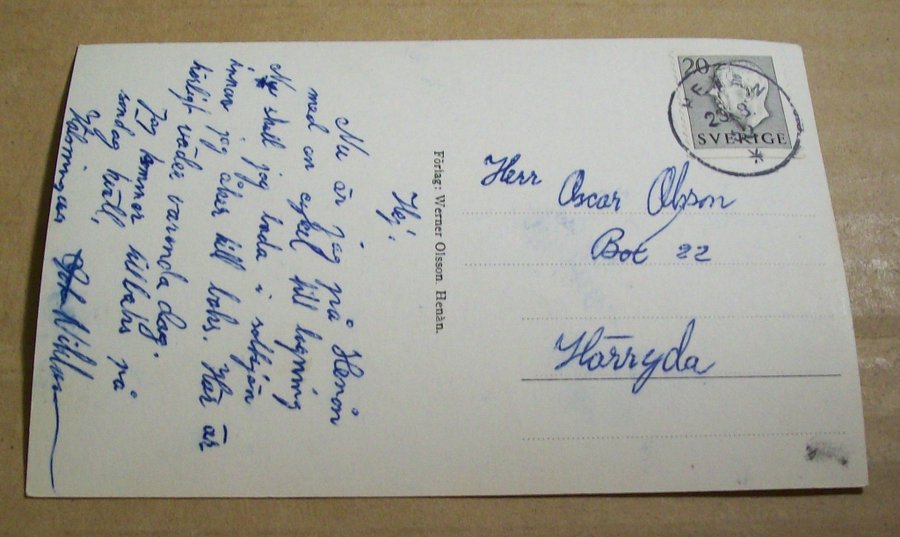 Hej.
Nu är jag på Henån
med en cykel till lagning
Nu skall jag bada i
innan jag åker till baks. Här är
härligt väder varenda dag.
Jag kommer tillbaks på
söndag kväll,
Hälsningar
Förlag: Werner Olsson. Henån.
20
SVERIGE
HENÅN
Herr Oscar Olsson
Box 22
Härryda